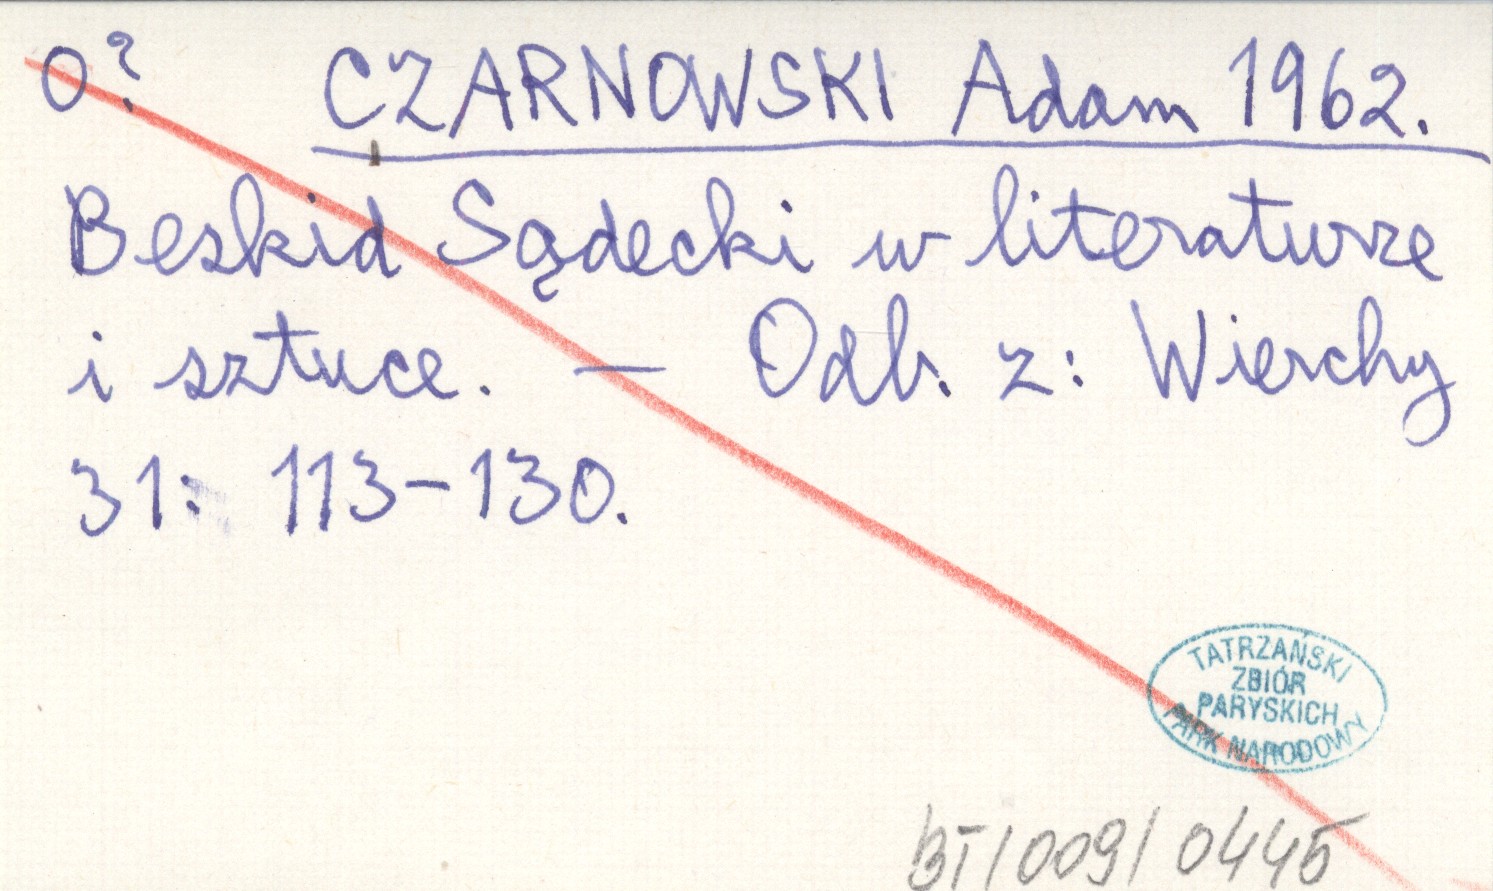 O? CZARNOWSKI Adam 1962.
Beskid Sądecki w literaturze
i sztuce. — Odb. z: Wierchy
31: 113-130.
TATRZAŃSKI
ZBIÓR
PARYSKICH
PARK NARODOWY
BT/009/0445